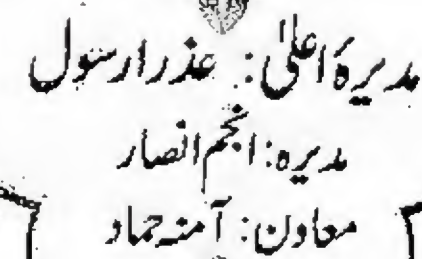 مدیرۂ اعلیٰ: عذرا رسول
مدیرہ: انجم انصار
معاون: آمنہ حماد